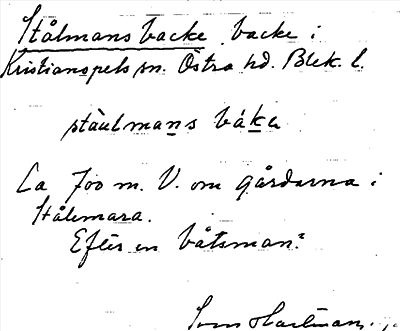 Stålmans backe backe i
Kristianopels sn. Östra hd. Blek. l.
stàulmans báka
Ca 700 m. V. om gårdarna i
Ståkemara.
Efter en båtsman?
Sven Hartman